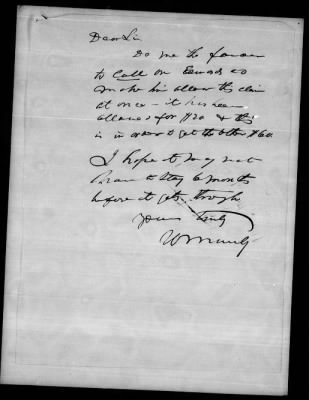 Dear Sir
Do me the favor
to call on Edwards &
make him allow this claim
at once - it has been
allowed for $120 & this
is in order to get the other $60.
I hope it may not
have to stay 6 months
before it gets through
yours truly